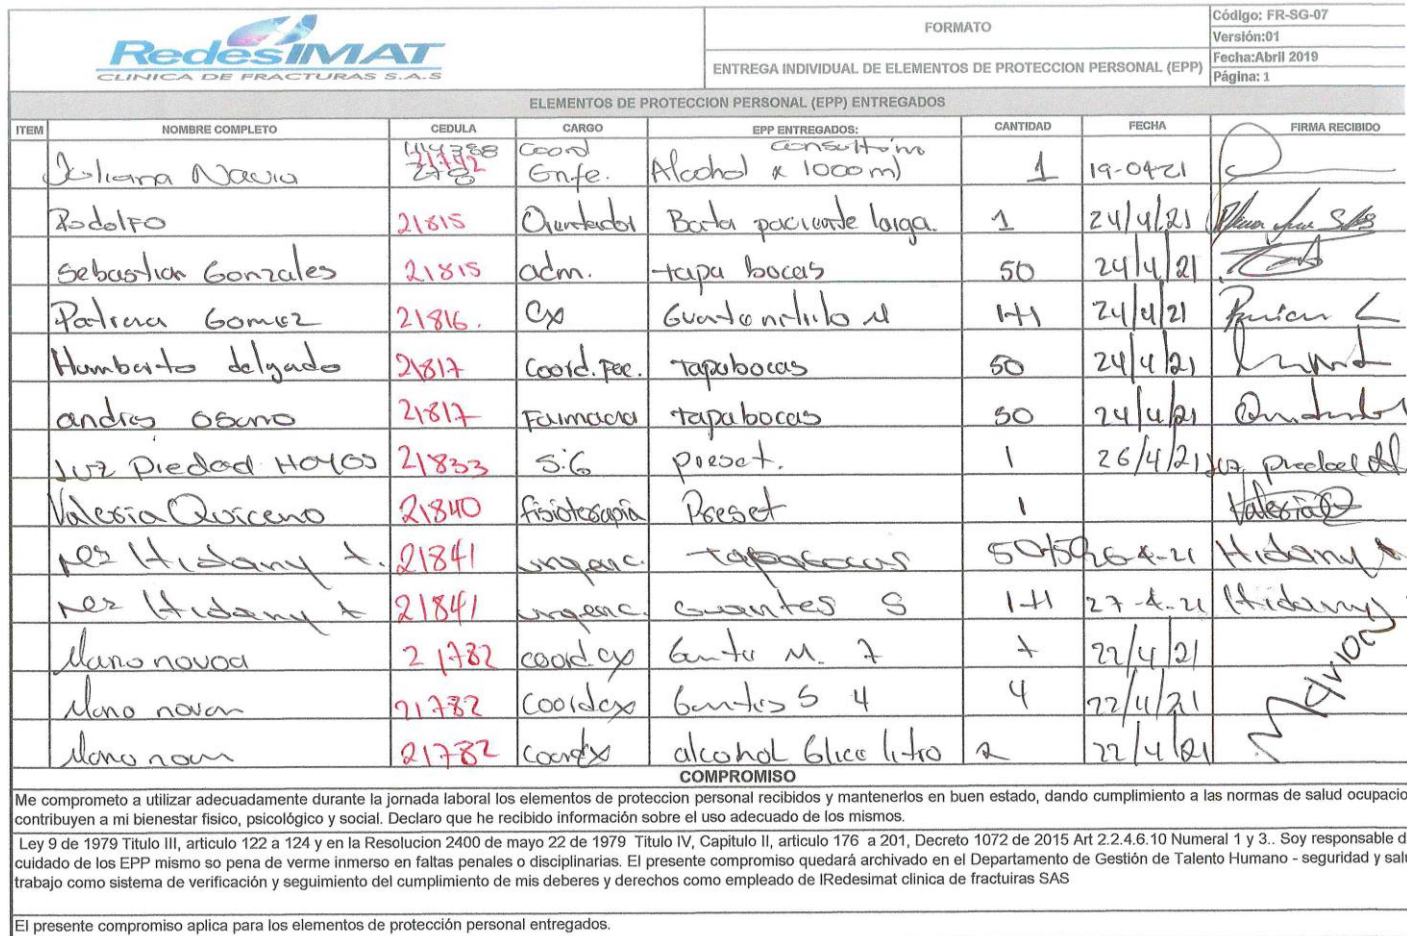 RedesIMAT
CLINICA DE FRACTURAS S.A.S
FORMATO
ENTREGA INDIVIDUAL DE ELEMENTOS DE PROTECCION PERSONAL (EPP)
Código: FR-SG-07
Versión:01
Fecha:Abril 2019
Página: 1
ELEMENTOS DE PROTECCION PERSONAL (EPP) ENTREGADOS
ITEM NOMBRE COMPLETO CEDULA CARGO EPP ENTREGADOS: CANTIDAD FECHA FIRMA RECIBIDO
Juliana Navia 21742 Coord Enfe. Alcohol x 1000 ml consultorio 1 19-04-21
Rodolfo 21815 Orientador Bata paciente larga. 1 24/4/21
Sebastian Gonzales 21815 adm. tapa bocas 50 24/4/21
Patricia Gomez 21816. Cx Guante nitrilo M 1+1 24/4/21
Humberto delgado 21817 Coord. Fac. Tapabocas 50 24/4/21
andres 21817 Farmacia tapabocas 50 24/4/21
Luz Piedad Hoyos 21833 S.G preset. 1 26/4/21 Luz piedad
Valeria Quiceno 21840 fisioterapia Preset 1 Valeria Q
Hidany A. 21841 urgenc. Tapabocas 50+50 26-4-21 Hidany A
Hidany A 21841 urgenc. Guantes S 1+1 27-4-21 Hidany
Mario novoa 21782 coord. cx M. 7 7 22/4/21
Mario 21782 Coord cx S 4 4 22/4/21 Mario
Mario 21782 Coord cx alcohol Glice litro 2 22/4/21
COMPROMISO
Me comprometo a utilizar adecuadamente durante la jornada laboral los elementos de proteccion personal recibidos y mantenerlos en buen estado, dando cumplimiento a las normas de salud ocupacio
contribuyen a mi bienestar fisico, psicológico y social. Declaro que he recibido información sobre el uso adecuado de los mismos.
Ley 9 de 1979 Titulo III, articulo 122 a 124 y en la Resolucion 2400 de mayo 22 de 1979 Titulo IV, Capitulo II, articulo 176 a 201, Decreto 1072 de 2015 Art 2.2.4.6.10 Numeral 1 y 3.. Soy responsable d
cuidado de los EPP mismo so pena de verme inmerso en faltas penales o disciplinarias. El presente compromiso quedará archivado en el Departamento de Gestión de Talento Humano - seguridad y salu
trabajo como sistema de verificación y seguimiento del cumplimiento de mis deberes y derechos como empleado de IRedesimat clinica de fractuiras SAS
El presente compromiso aplica para los elementos de protección personal entregados.